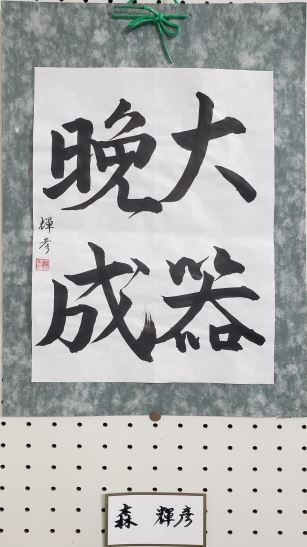 大器
晩成
輝彦
森 輝彦